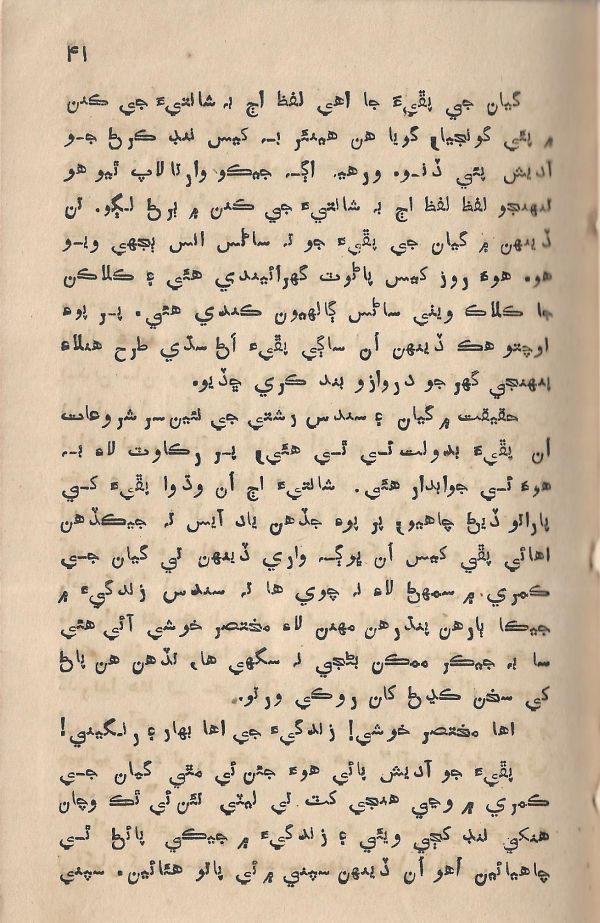 ۴۱
گيان جي ڀڦيءَ جا اهي لفظ اڄ بہ شانتيءَ جي ڪنن
۾ پئي گونجيا، گويا هن هينئر بہ کيس ننڊ ڪرڻ جو
آديش پئي ڏنو. ورهيہ اڳہ جيڪو وارتالاپ ٿيو هو
تنهنجو لفظ لفظ اڄ بہ شانتيءَ جي ڪنن ۾ ٻرڻ لڳو. تن
ڏينهن ۾ گيان جي ڀڦيءَ جو تہ ساڻس انس ٻجهي ويو
هو. هوءَ روز کيس پاڻوٽ گهرائيندي هئي ۽ ڪلاڪن
جا ڪلاڪ ويٺي ساڻس ڳالهيون ڪندي هئي. پر پوءِ
اوچتو هڪ ڏينهن اُن ساڳي ڀڦيءَ اڻ سڌي طرح هنلاءِ
پنهنجي گهر جو دروازو بند ڪري ڇڏيو.
حقيقت ۾ گيان ۽ سندس رشتي جي نئين سر شروعات
اُن ڀڦيءَ بدولت ئي ٿي هئي، پر رڪاوٽ لاءِ بہ
هوءَ ئي جوابدار هئي. شانتيءَ اڄ اُن وڌوا ڀڦيءَ کي
پاراتو ڏيڻ چاهيو، پر پوءِ جڏهن ياد آيس تہ جيڪڏهن
اهائي ڀڦي کيس اُن ڀوڳہ واري ڏينهن تي گيان جي
ڪمري ۾ سمهڻ لاءِ نہ چوي ها تہ سندس زندگيءَ ۾
جيڪا ٻارهن پندرهن مهنن لاءِ مختصر خوشي آئي هئي
سا بہ جيڪر ممڪن بڻجي نہ سگهي ها، تڏهن هن پاڻ
کي سخن ڪڍڻ کان روڪي ورتو.
اها مختصر خوشي! زندگيءَ جي اها بهار ۽ رنگيني!
ڀڦيءَ جو آديش پائي هوءَ جئن ئي مٿي گيان جي
ڪمري ۾ وڃي هنجي کٽ تي ليٽي تئن ئي ٿڪ وچان
هنکي ننڊ کڄي ويئي ۽ زندگيءَ ۾ جيڪي پائڻ ٿي
چاهيائين اهو اُن ڏينهن سپني ۾ ئي پاتو هئائين. سپني